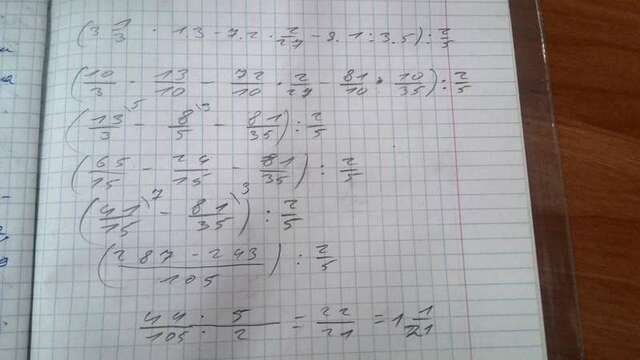 (3 1/3 · 13 - 7.2 · 2/27 - 8.1 : 3.5) : 2/5
(10/3 · 13/10 - 72/10 · 2/27 - 81/10 · 10/35) : 2/5
(13/3 \5 - 8/5 \3 - 81/35) : 2/5
(65/15 - 24/15 - 81/35) : 2/5
(41/15 \7 - 81/35 \3) : 2/5
(287 - 243 / 105) : 2/5
44 · 5 / 105 · 2 = 22/21 = 1 1/21